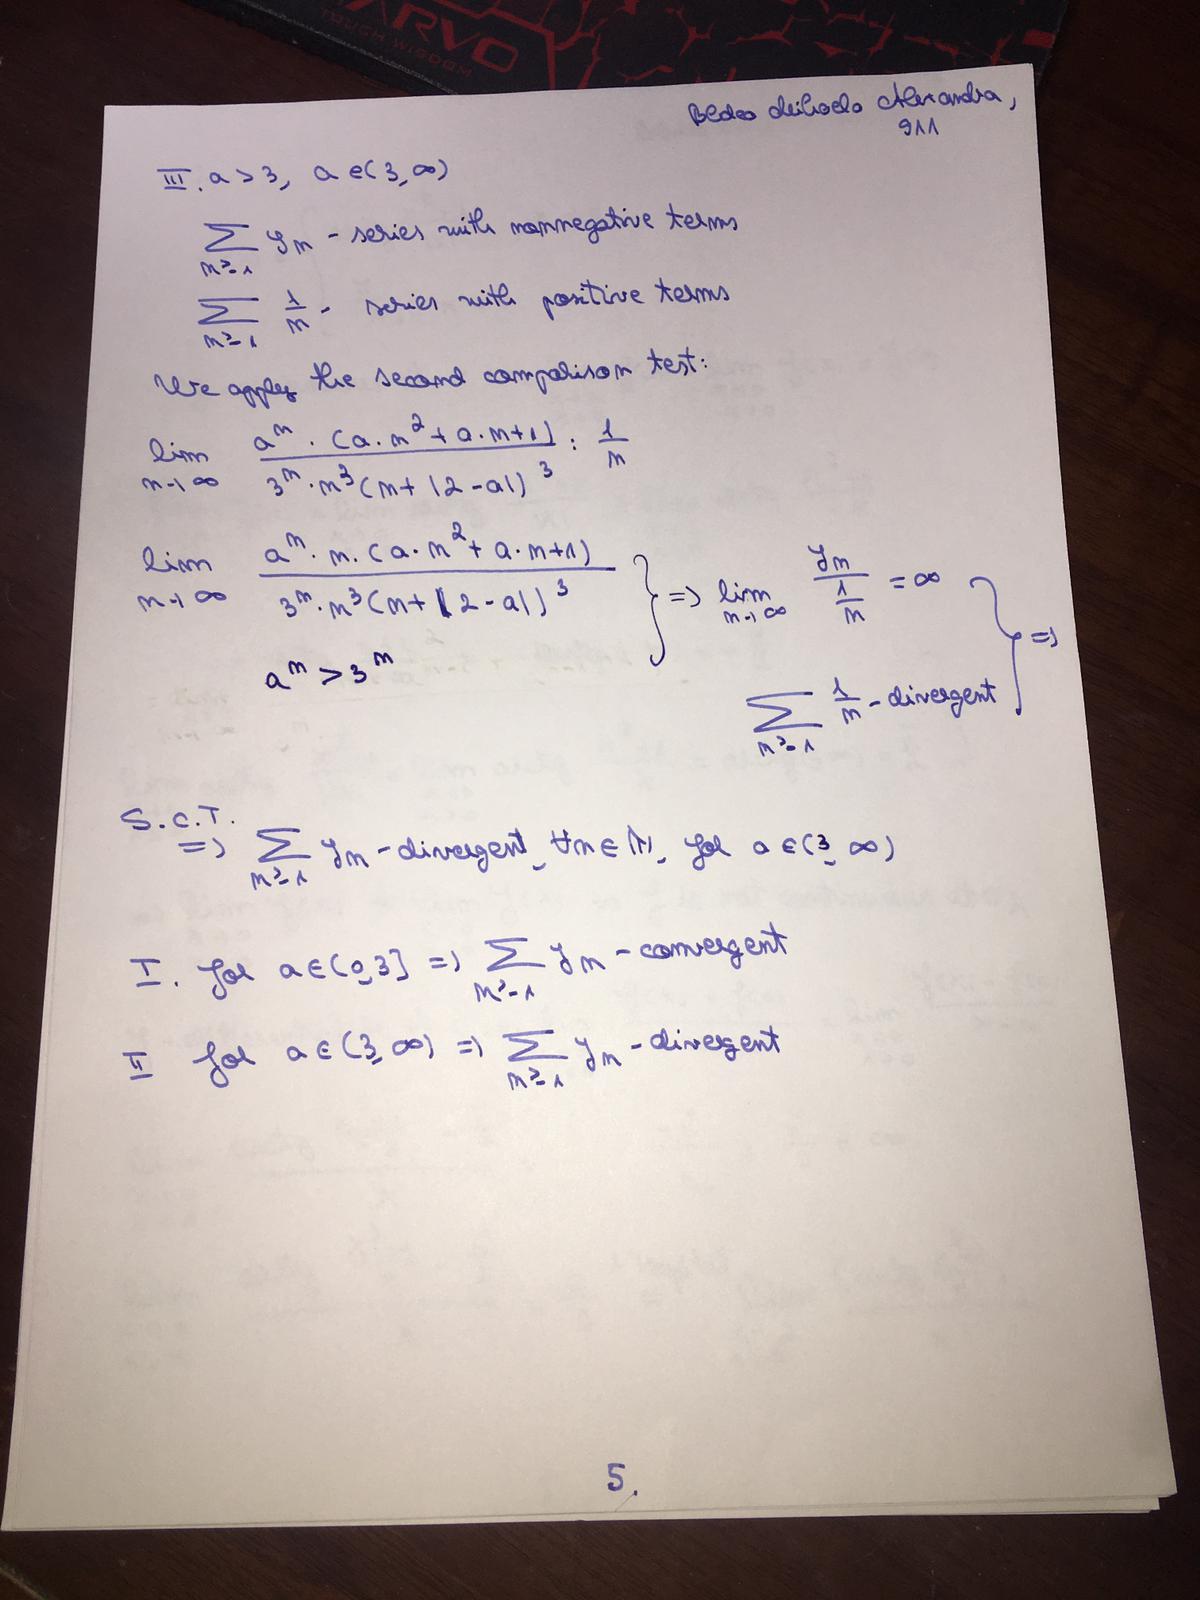 ARVO
TOUGH WISDOM
Alexandra,
911
III. a > 3, a ∈ (3, ∞)
∑ n≥1 yn - series with nonnegative terms
∑ n≥1 1/n - series with positive terms
We apply the second comparison test:
lim n→∞ a^n · (a·n^2 + a·n+1) / 3^n · n^3 (n + |2-a|)^3 : 1/n
lim n→∞ a^n · n · (a·n^2 + a·n+1) / 3^n · n^3 (n + |2-a|)^3 } => lim n→∞ yn / 1/n = ∞ } =>
a^n > 3^n
∑ n≥1 1/n - divergent
S.C.T. => ∑ n≥1 yn - divergent, ∀n∈ℕ, for a ∈ (3, ∞)
I. for a∈(0,3] => ∑ n≥1 yn - convergent
II for a∈(3, ∞) => ∑ n≥1 yn - divergent
5.